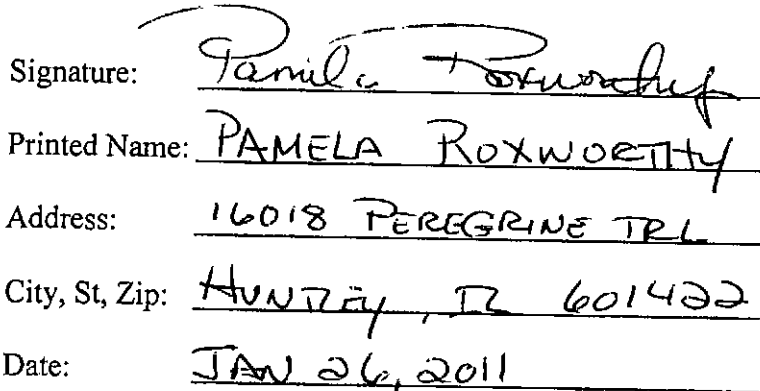 Signature: Pamela Roxworthy
Printed Name: PAMELA ROXWORTHY
Address: 16018 PEREGRINE TRL
City, St, Zip: HUNTLEY, IL 601422
Date: JAN 26, 2011